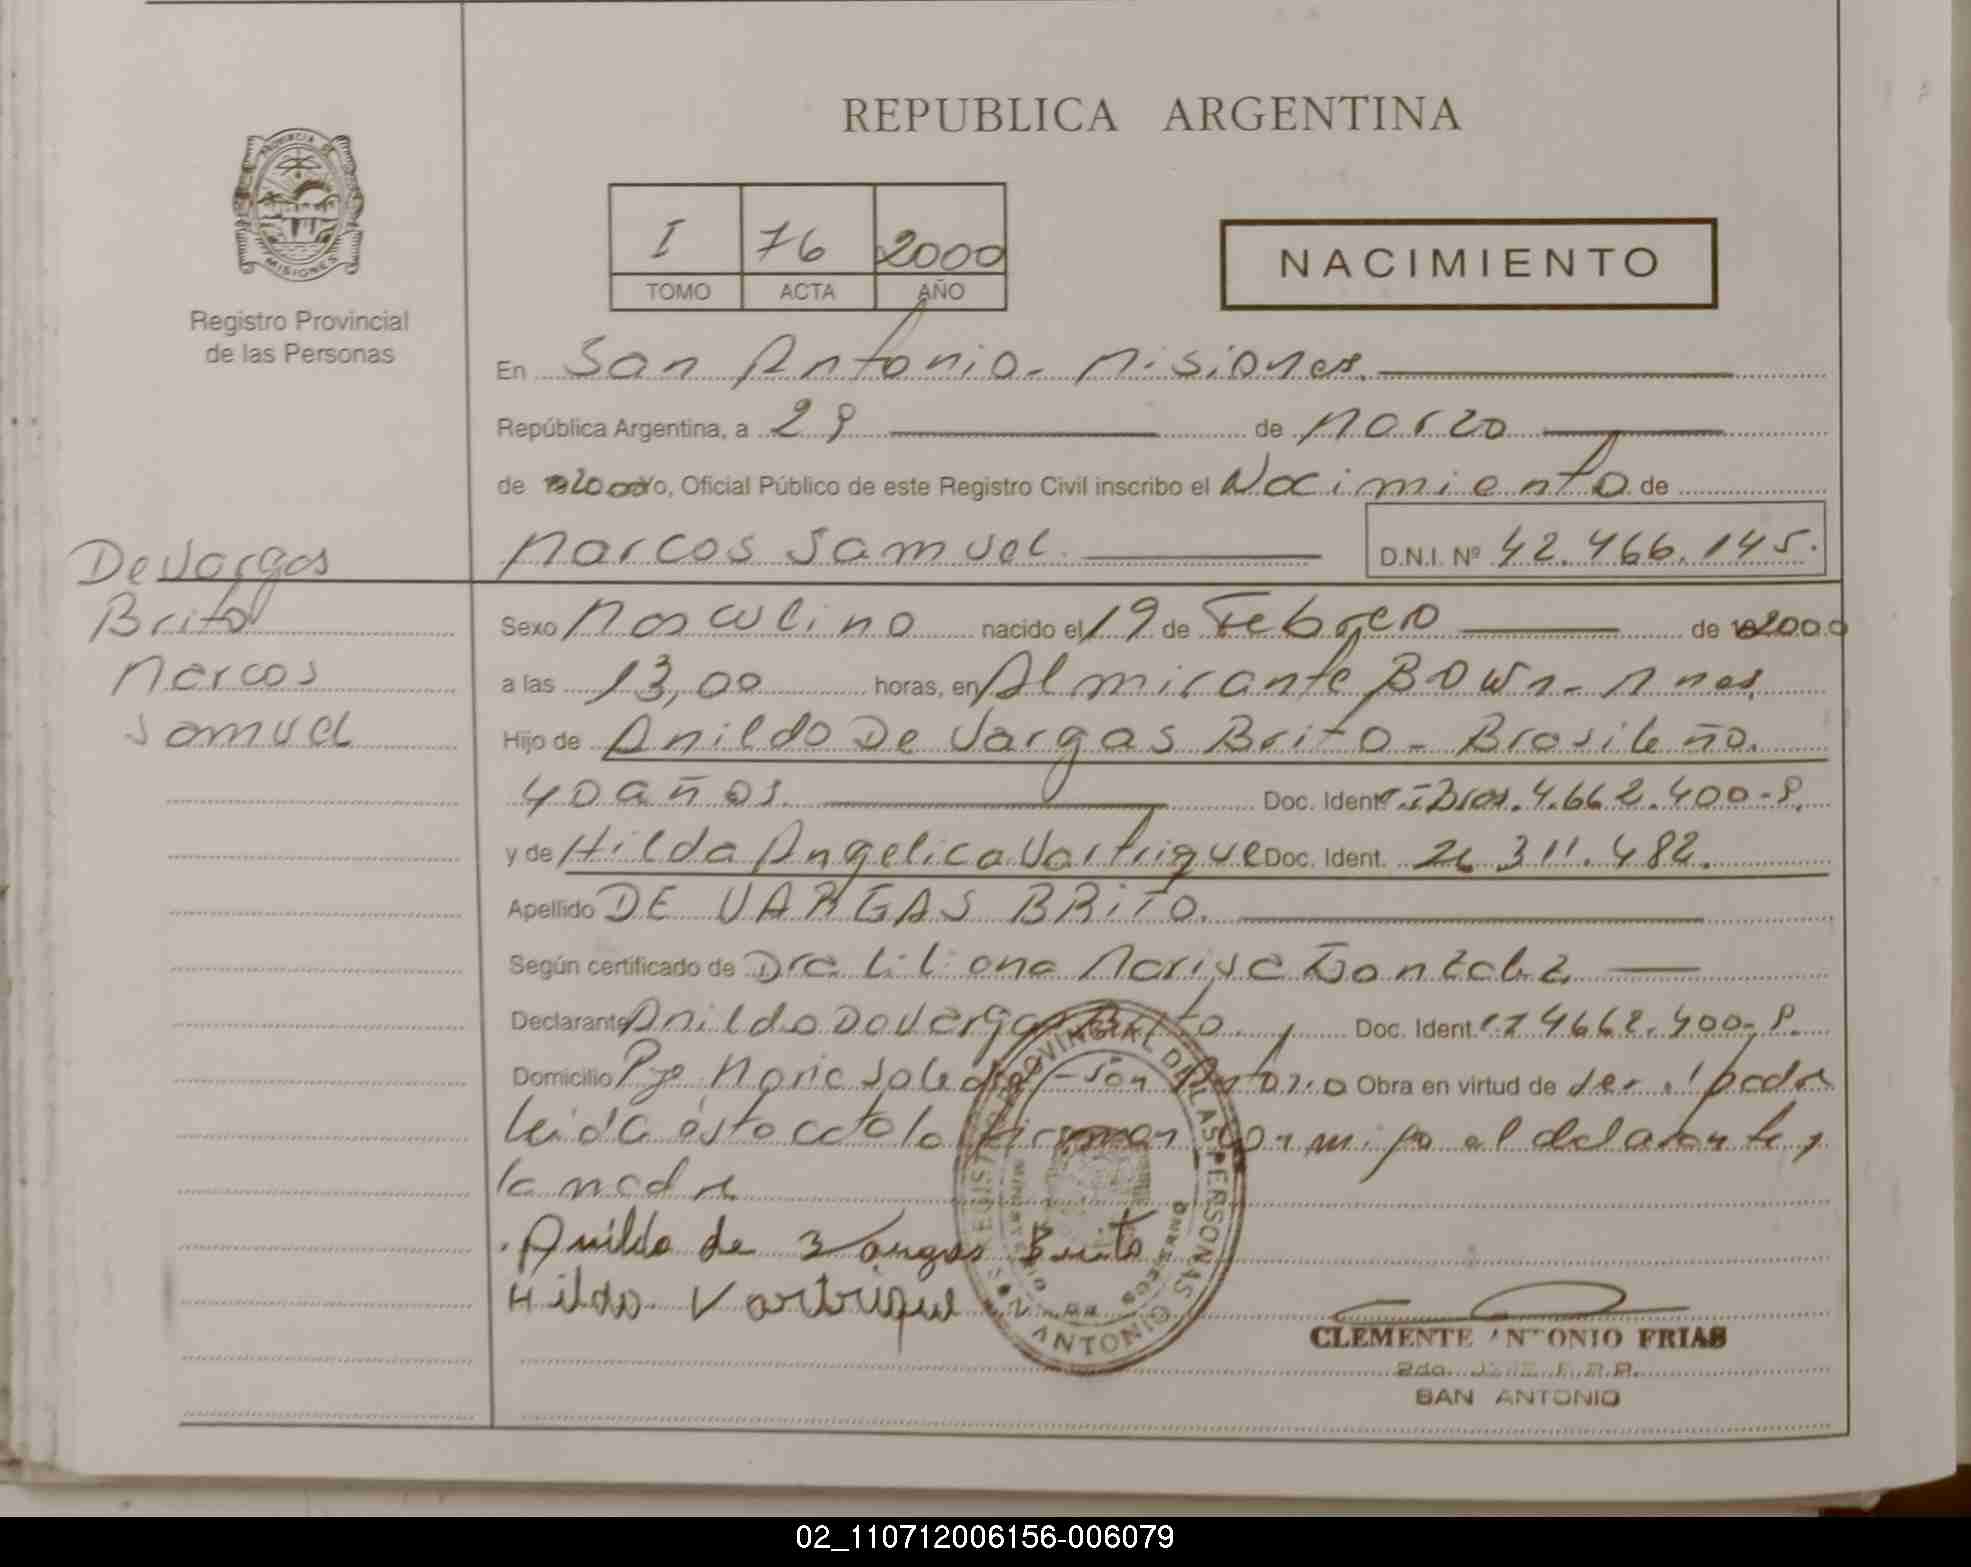 REPUBLICA ARGENTINA
PROVINCIA DE MISIONES
Registro Provincial
de las Personas
I 76 2000
TOMO ACTA AÑO
NACIMIENTO
En San Antonio - Misiones.
República Argentina, a 29 de Marzo
de 2000 Yo, Oficial Público de este Registro Civil inscribo el Nacimiento de
Marcos Samuel. D.N.I. Nº 42.466.145.
De Vargas
Brito
Marcos
Samuel
Sexo Masculino nacido el 19 de Febrero de 2000
a las 13,00 horas, en Almirante Bown - Mnes.
Hijo de Anildo De Vargas Brito - Brasileño.
40 años. Doc. Ident. CI Bras. 4.662.400-8.
y de Hilda Angelica Vartrique Doc. Ident. 26 311.482.
Apellido DE VARGAS BRiTO.
Según certificado de Dra Liliana Marisa Gonzalez
Declarante Anildo De Vargas Brito. Doc. Ident. CI 4662.400-8.
Domicilio Pje Maria Soledad - San Antonio Obra en virtud de ser el padre
leida ésta acta la firman conmigo el declarante y
la madre
Anildo de Vargas Brito
Hilda Vartrique
REGISTRO PROVINCIAL DE LAS PERSONAS
SAN ANTONIO
CLEMENTE ANTONIO FRIAS
SAN ANTONIO
02_110712006156-006079